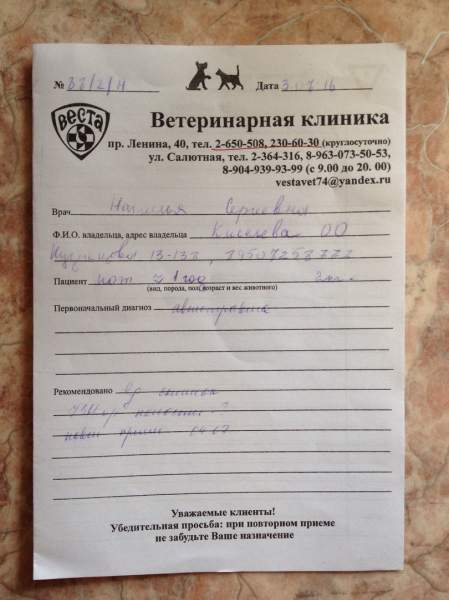 № 37/2/Н Дата 3.07.16
ВЕСТА
Ветеринарная клиника
пр. Ленина, 40, тел. 2-650-508, 230-60-30 (круглосуточно)
ул. Салютная, тел. 2-364-316, 8-963-073-50-53,
8-904-939-93-99 (с 9.00 до 20. 00)
vestavet74@yandex.ru
Врач Наталья Сергеевна
Ф.И.О. владельца, адрес владельца Киселева ОО
13-137,
Пациент кот 1 год
(вид, порода, пол, возраст и вес животного)
Первоначальный диагноз автотравма
Рекомендовано
полости
прием 04.07
Уважаемые клиенты!
Убедительная просьба: при повторном приеме
не забудьте Ваше назначение